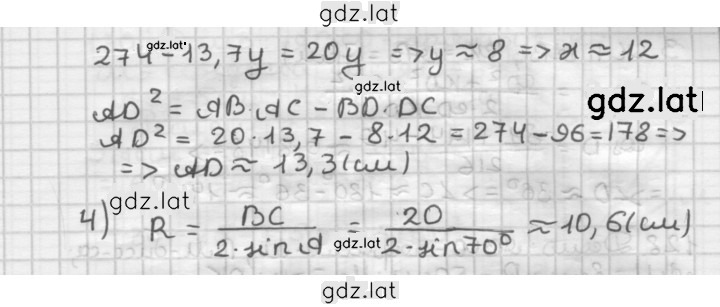 gdz.lat
274 - 13,7y = 20y => y ≈ 8 => x ≈ 12
gdz.lat
gdz.lat
AD² = AB·AC - BD·DC
gdz.lat
AD² = 20·13,7 - 8·12 = 274 - 96 = 178 =>
=> AD ≈ 13,3 (см)
gdz.lat
4) R = BC / 2·sin A = 20 / 2·sin 70° ≈ 10,6 (см)
gdz.lat
gdz.lat